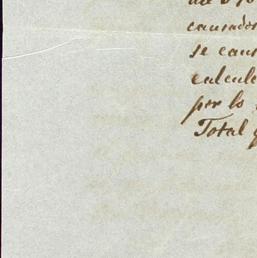 causado
se cau
calcula
por lo
Total q